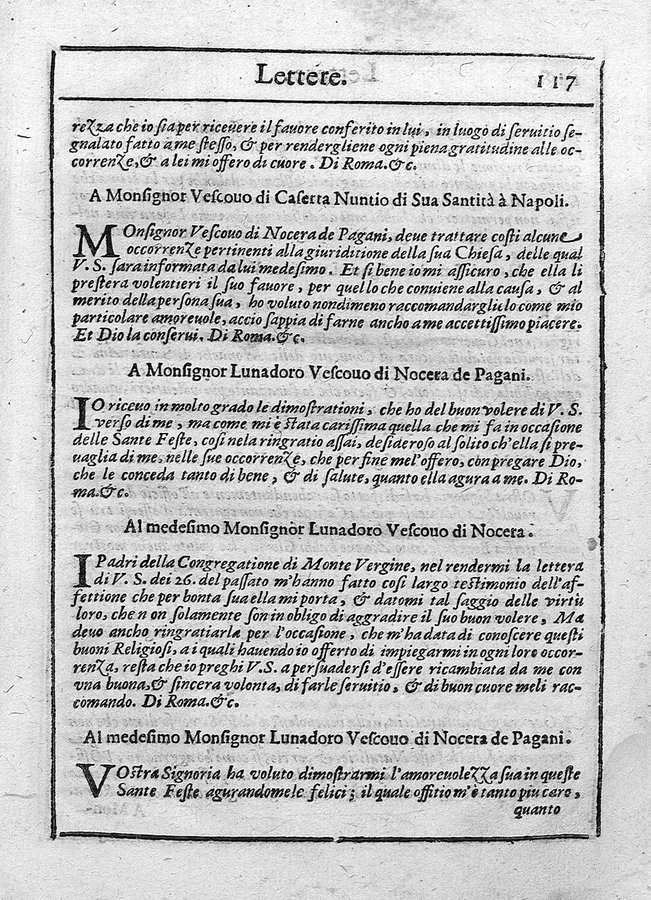 Lettere. 117
rezza che io sia per riceuere il fauore conferito in lui, in luogo di seruitio se-
gnalato fatto a me stesso, & per rendergliene ogni piena gratitudine alle oc-
correnze, & a lei mi offero di cuore. Di Roma. &c.
A Monsignor Vescouo di Caserta Nuntio di Sua Santità à Napoli.
MOnsignor Vescouo di Nocera de Pagani, deue trattare costi alcune
occorrenze pertinenti alla giuriditione della sua Chiesa, delle qual
V. S. sara informata da lui medesimo. Et si bene io mi assicuro, che ella li
prestera volentieri il suo fauore, per quello che conuiene alla causa, & al
merito della persona sua, ho voluto nondimeno raccomandargliulo come mio
particolare amoreuole, accio sappia di farne ancho a me accettissimo piacere.
Et Dio la conserui. Di Roma. &c.
A Monsignor Lunadoro Vescouo di Nocera de Pagani.
IO riceuo in molto grado le dimostrationi, che ho del buon volere di V. S.
verso di me, ma come mi è stata carissima quella che mi fa in occasione
delle Sante Feste, cosi nela ringratio assai, desideroso al solito ch'ella si pre-
uaglia di me, nelle sue occorrenze, che per fine mel'offero, con pregare Dio,
che le conceda tanto di bene, & di salute, quanto ella agura a me. Di Ro-
ma. &c.
Al medesimo Monsignor Lunadoro Vescouo di Nocera.
I Padri della Congregatione di Monte Vergine, nel rendermi la lettera
di V. S. dei 26. del passato m'hanno fatto cosi largo testimonio dell'af-
fettione che per bonta sua ella mi porta, & datomi tal saggio delle virtù
loro, che non solamente son in obligo di aggradire il suo buon volere, Ma
deuo ancho ringratiarla per l'occasione, che m'ha data di conoscere questi
buoni Religiosi, a i quali hauendo io offerto di impiegarmi in ogni lore occor-
renza, resta che io preghi V. S. a persuadersi d'essere ricambiata da me con
vna buona, & sincera volonta, di farle seruitio, & di buon cuore meli rac-
comando. Di Roma. &c.
Al medesimo Monsignor Lunadoro Vescouo di Nocera de Pagani.
VOstra Signoria ha voluto dimostrarmi l'amoreuolezza sua in queste
Sante Feste agurandomele felici; il quale offitio m'è tanto piu caro,
quanto